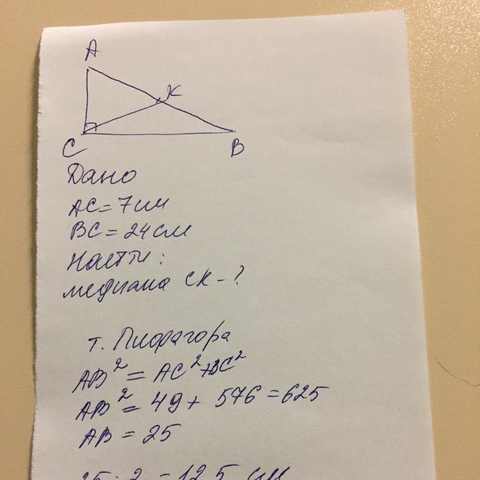 A
K
C
B
Дано
AC = 7 см
BC = 24 см
Найти:
медиана CK - ?
т. Пифагора
AB² = AC² + BC²
AB² = 49 + 576 = 625
AB = 25
25 : 2 = 12,5 см